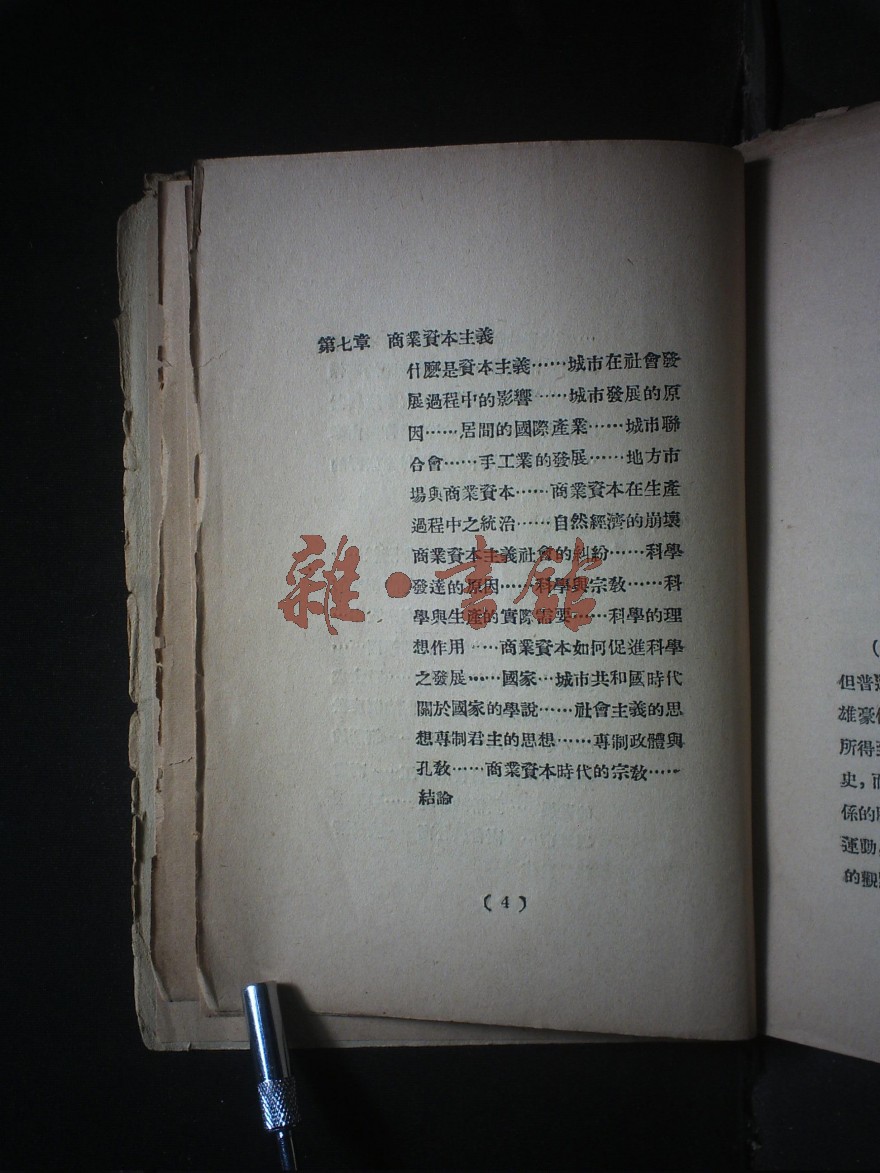 第七章 商業資本主義
什麼是資本主義……城市在社會發
展過程中的影響……城市發展的原
因……居間的國際產業……城市聯
合會……手工業的發展……地方市
場與商業資本……商業資本在生產
過程中之統治……自然經濟的崩壞
商業資本主義社會的糾紛……科學
發達的原因……科學與宗教……科
學與生產的實際需要……科學的理
想作用……商業資本如何促進科學
之發展……國家…城市共和國時代
關於國家的學說……社會主義的思
想專制君主的思想……專制政體與
孔教……商業資本時代的宗教……
結論
(4)
雜·書館
(
但普
雄豪
所得
史,而
係的
運動
的觀